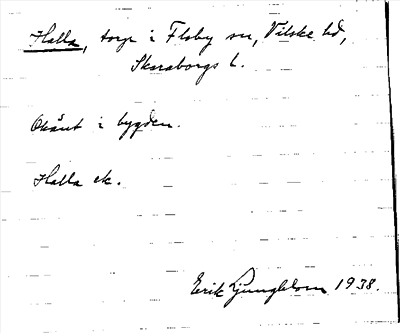 Halla, torp i Floby sn, Vilske hd,
Skaraborgs l.
Okänt i bygden.
Halla ek.
Erik Ljungblom 1938.